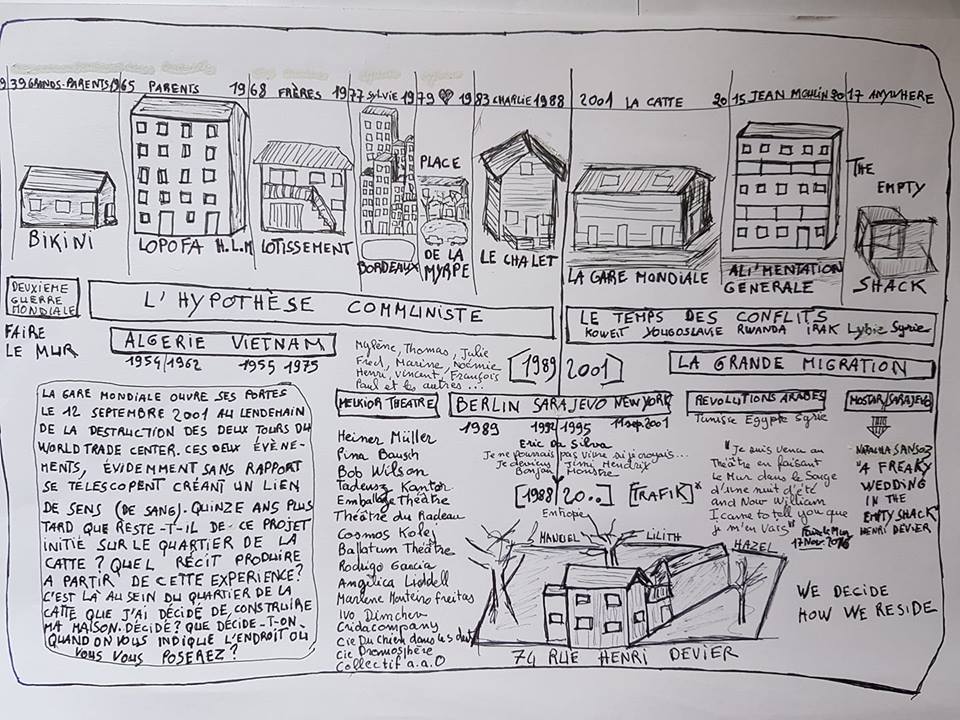 1939 GRANDS-PARENTS 1965 PARENTS 1968 FRÈRES 1977 SYLVIE 1979 ♥ 1983 CHARLIE 1988 2001 LA CATTE 2015 JEAN MOULIN 2017 ANYWHERE
BIKINI
LOPOFA H.L.M
LOTISSEMENT
BORDEAUX
PLACE
DE LA
MYRPE
LE CHALET
LA GARE MONDIALE
ALI'MENTATION
GENERALE
THE
EMPTY
SHACK
DEUXIÈME
GUERRE
MONDIALE
L'HYPOTHÈSE COMMUNISTE
LE TEMPS DES CONFLITS
KOWEIT YOUGOSLAVIE RWANDA IRAK Lybie Syrie
FAIRE
LE MUR
ALGERIE VIETNAM
1954/1962 1955 1975
Mylène, Thomas, Julie
Fred, Marine, Noémie
Henri, Vincent, François
Paul et les autres...
[1989 2001]
LA GRANDE MIGRATION
LA GARE MONDIALE OUVRE SES PORTES
LE 12 SEPTEMBRE 2001 AU LENDEMAIN
DE LA DESTRUCTION DES DEUX TOURS DU
WORLD TRADE CENTER. CES DEUX ÉVÈNE-
MENTS, ÉVIDEMMENT SANS RAPPORT
SE TÉLESCOPENT CRÉANT UN LIEN
DE SENS (DE SANG). QUINZE ANS PLUS
TARD QUE RESTE-T-IL DE CE PROJET
INITIÉ SUR LE QUARTIER DE LA
CATTE? QUEL RÉCIT PRODUIRE
A PARTIR DE CETTE EXPERIENCE?
C'EST LÀ AU SEIN DU QUARTIER DE LA
CATTE QUE J'AI DÉCIDÉ DE CONSTRUIRE
MA MAISON. DÉCIDÉ? QUE DÉCIDE-T-ON
QUAND ON VOUS INDIQUE L'ENDROIT OÙ
VOUS VOUS POSEREZ?
MELKIOR THEATRE
Heiner Müller
Pina Bausch
Bob Wilson
Tadeusz Kantor
Emballage Théâtre
Théâtre du Radeau
Cosmos Kolej
Ballatum Théâtre
Rodrigo Garcia
Angélica Liddell
Marlene Monteiro Freitas
Ivo Dimchev
Cridacompany
Cie Du Chien dans les dents
Cie Dromosphère
Collectif a.a.O
BERLIN SARAJEVO NEW YORK
1989 1992 1995 11 sep. 2001
Eric da Silva
Je ne pourrais pas vivre si je croyais...
Je deviens Jimi Hendrix
Bonjan Monstre
[1988 20..] [TRAFIK]*
Entropie
REVOLUTIONS ARABES
Tunisie Egypte Syrie
"Je suis venu au
Théâtre en faisant
le Mur dans le Songe
d'une nuit d'été
and Now William
I came to tell you que
je m'en Vais"
Faire le Mur
17 Nov. 2016
MOSTAR/SARAJEVO
NATACHA SANSOZ
"A FREAKY
WEDDING
IN THE
EMPTY SHACK"
HENRI DEVIER
MANOEL LILITH HAZEL
74 RUE HENRI DEVIER
WE DECIDE
HOW WE RESIDE